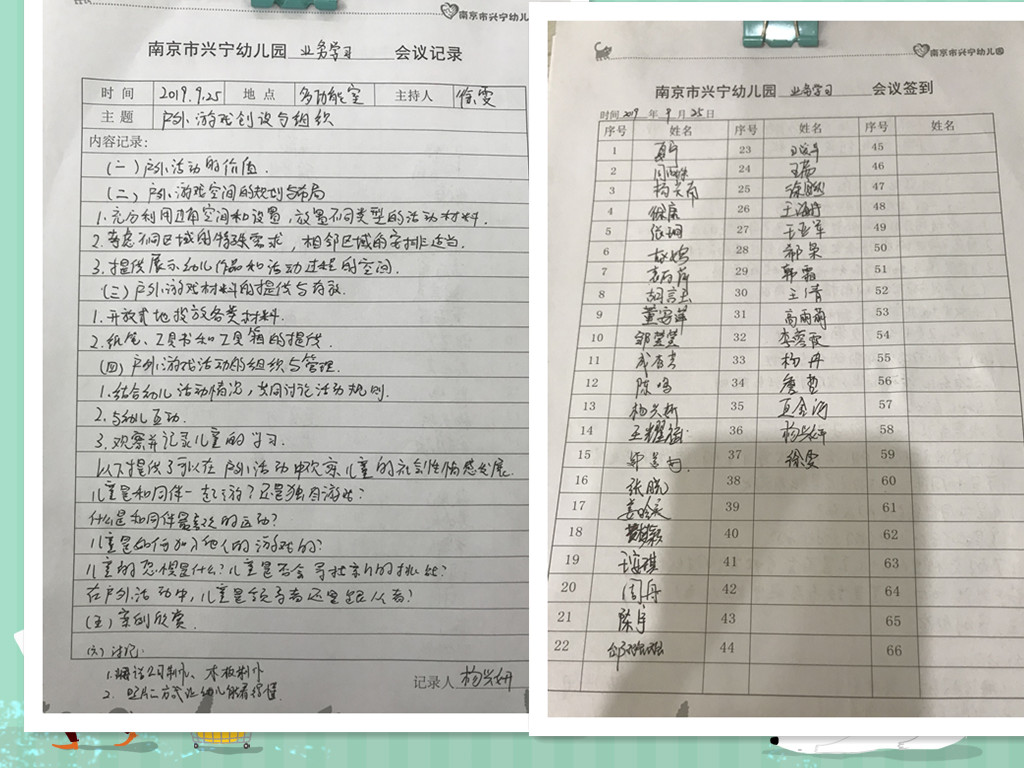 南京市兴宁幼儿
南京市兴宁幼儿园 业务学习 会议记录
时间 2019.9.25 地点 多功能室 主持人 徐雯
主题 户外游戏创设与组织
内容记录:
(一)户外活动的价值.
(二)户外游戏空间的规划与布局
1.充分利用过有空间和设置,放置不同类型的活动材料.
2.考虑不同区域的特殊需求,相邻区域的安排适当.
3.提供展示幼儿作品和活动过程的空间.
(三)户外游戏材料的提供与存放.
1.开放式地投放各类材料.
2.纸笔、工具书和工具箱的提供.
(四)户外游戏活动的组织与管理.
1.结合幼儿活动情况,共同讨论活动规则.
2.与幼儿互动.
3.观察并记录儿童的学习.
以下提供了可以在户外活动中观察儿童的社会性情感发展.
儿童是和同伴一起游?还是独自游戏?
什么是和同伴最喜欢的运动?
儿童是如何加入他人的游戏的?
儿童的恐惧是什么?儿童是否会寻找新的挑战?
在户外活动中,儿童是领导者还是跟从者?
(五)案例欣赏.
(六)讨论:
1.海洁公司制作、木板制作
2.照片二方式让幼儿能看得懂.
记录人 杨兴妍
南京市兴宁幼儿园
南京市兴宁幼儿园 业务学习 会议签到
时间 2019 年 9 月 25 日
序号 姓名 序号 姓名 序号 姓名
1 23 45
2 24 王瑞 46
3 25 47
4 徐康 26 王海丹 48
5 张珊 27 王亚军 49
6 28 郝果 50
7 29 韩霜 51
8 胡言玉 30 王倩 52
9 董安萍 31 高雨萌 53
10 邹莹莹 32 李蓉蓉 54
11 成百吉 33 杨丹 55
12 陈鸣 34 唐哲 56
13 35 57
14 王耀福 36 杨兴妍 58
15 37 徐雯 59
16 张晓 38 60
17 39 61
18 40 62
19 41 63
20 周丹 42 64
21 陈宇 43 65
22 44 66